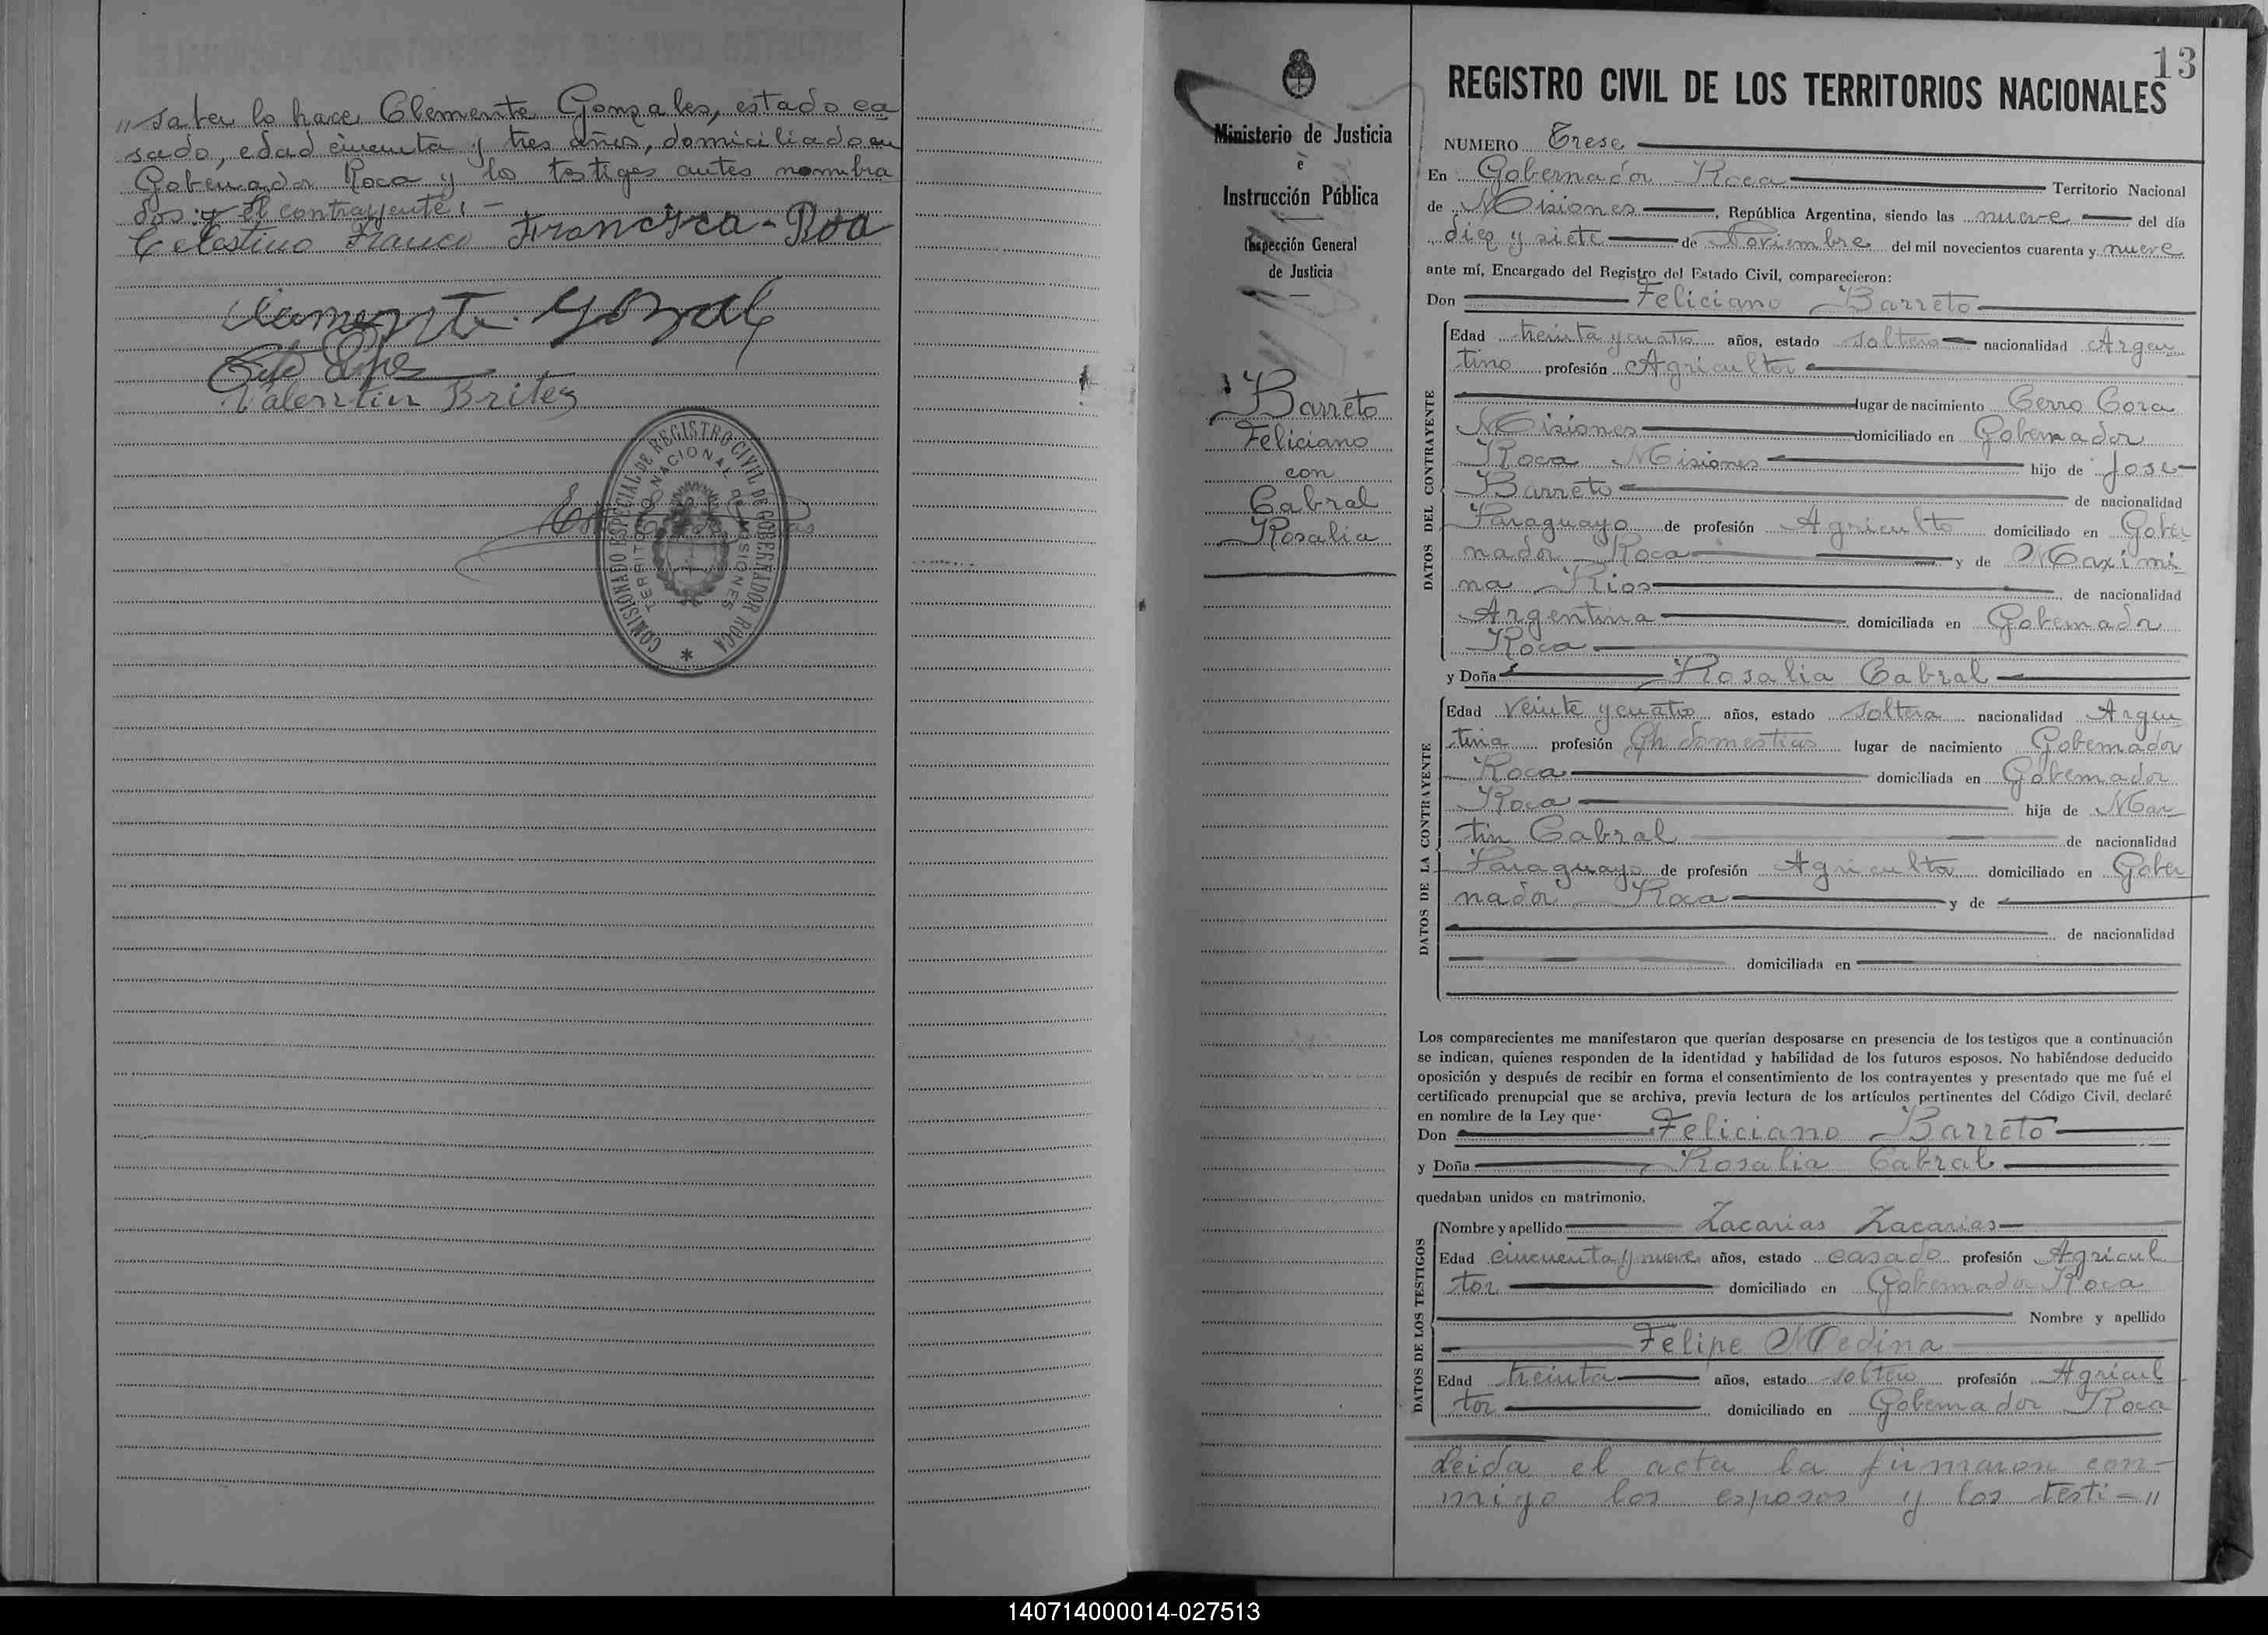 „ saber lo hace Clemente Gonzales, estado ca
sado, edad cincuenta y tres años, domiciliado en
Gobernador Roca y los testigos antes nombra
dos y el contrayente. –
Celestino Franco Francisca - Roa
Valentin Britez
COMISIONADO ESPECIAL DE REGISTRO CIVIL DE GOBERNADOR ROCA
TERRITORIO NACIONAL DE MISIONES
Ministerio de Justicia
e
Instrucción Pública
Inspección General
de Justicia
Barreto
Feliciano
con
Cabral
Rosalia
13
REGISTRO CIVIL DE LOS TERRITORIOS NACIONALES
NUMERO Trese
En Gobernador Roca Territorio Nacional
de Misiones, República Argentina, siendo las nueve del día
diez y siete de Noviembre del mil novecientos cuarenta y nueve
ante mí, Encargado del Registro del Estado Civil, comparecieron:
Don Feliciano Barreto
DATOS DEL CONTRAYENTE
Edad treinta y cuatro años, estado soltero nacionalidad Argen
tino profesión Agricultor
lugar de nacimiento Cerro Cora
Misiones domiciliado en Gobernador
Roca Misiones hijo de Jose
Barreto de nacionalidad
Paraguayo de profesión Agriculto domiciliado en Gober
nador Roca y de Maximi
na Rios de nacionalidad
Argentina domiciliada en Gobernador
Roca
y Doña Rosalia Cabral
DATOS DE LA CONTRAYENTE
Edad veinte y cuatro años, estado soltera nacionalidad Argen
tina profesión Qh domesticos lugar de nacimiento Gobernador
Roca domiciliada en Gobernador
Roca hija de Mar
tin Cabral de nacionalidad
Paraguayo de profesión Agricultor domiciliado en Gober
nador Roca y de
de nacionalidad
domiciliada en
Los comparecientes me manifestaron que querían desposarse en presencia de los testigos que a continuación
se indican, quienes responden de la identidad y habilidad de los futuros esposos. No habiéndose deducido
oposición y después de recibir en forma el consentimiento de los contrayentes y presentado que me fué el
certificado prenupcial que se archiva, previa lectura de los artículos pertinentes del Código Civil, declaré
en nombre de la Ley que·
Don Feliciano Barreto
y Doña Rosalia Cabral
quedaban unidos en matrimonio.
DATOS DE LOS TESTIGOS
Nombre y apellido Zacarias Zacarias
Edad cincuenta y nueve años, estado casado profesión Agricul
tor domiciliado en Gobernador Roca
Nombre y apellido
Felipe Medina
Edad treinta años, estado soltero profesión Agricul
tor domiciliado en Gobernador Roca
Leida el acta la firmaron con-
migo los esposos y los testi- „
140714000014-027513